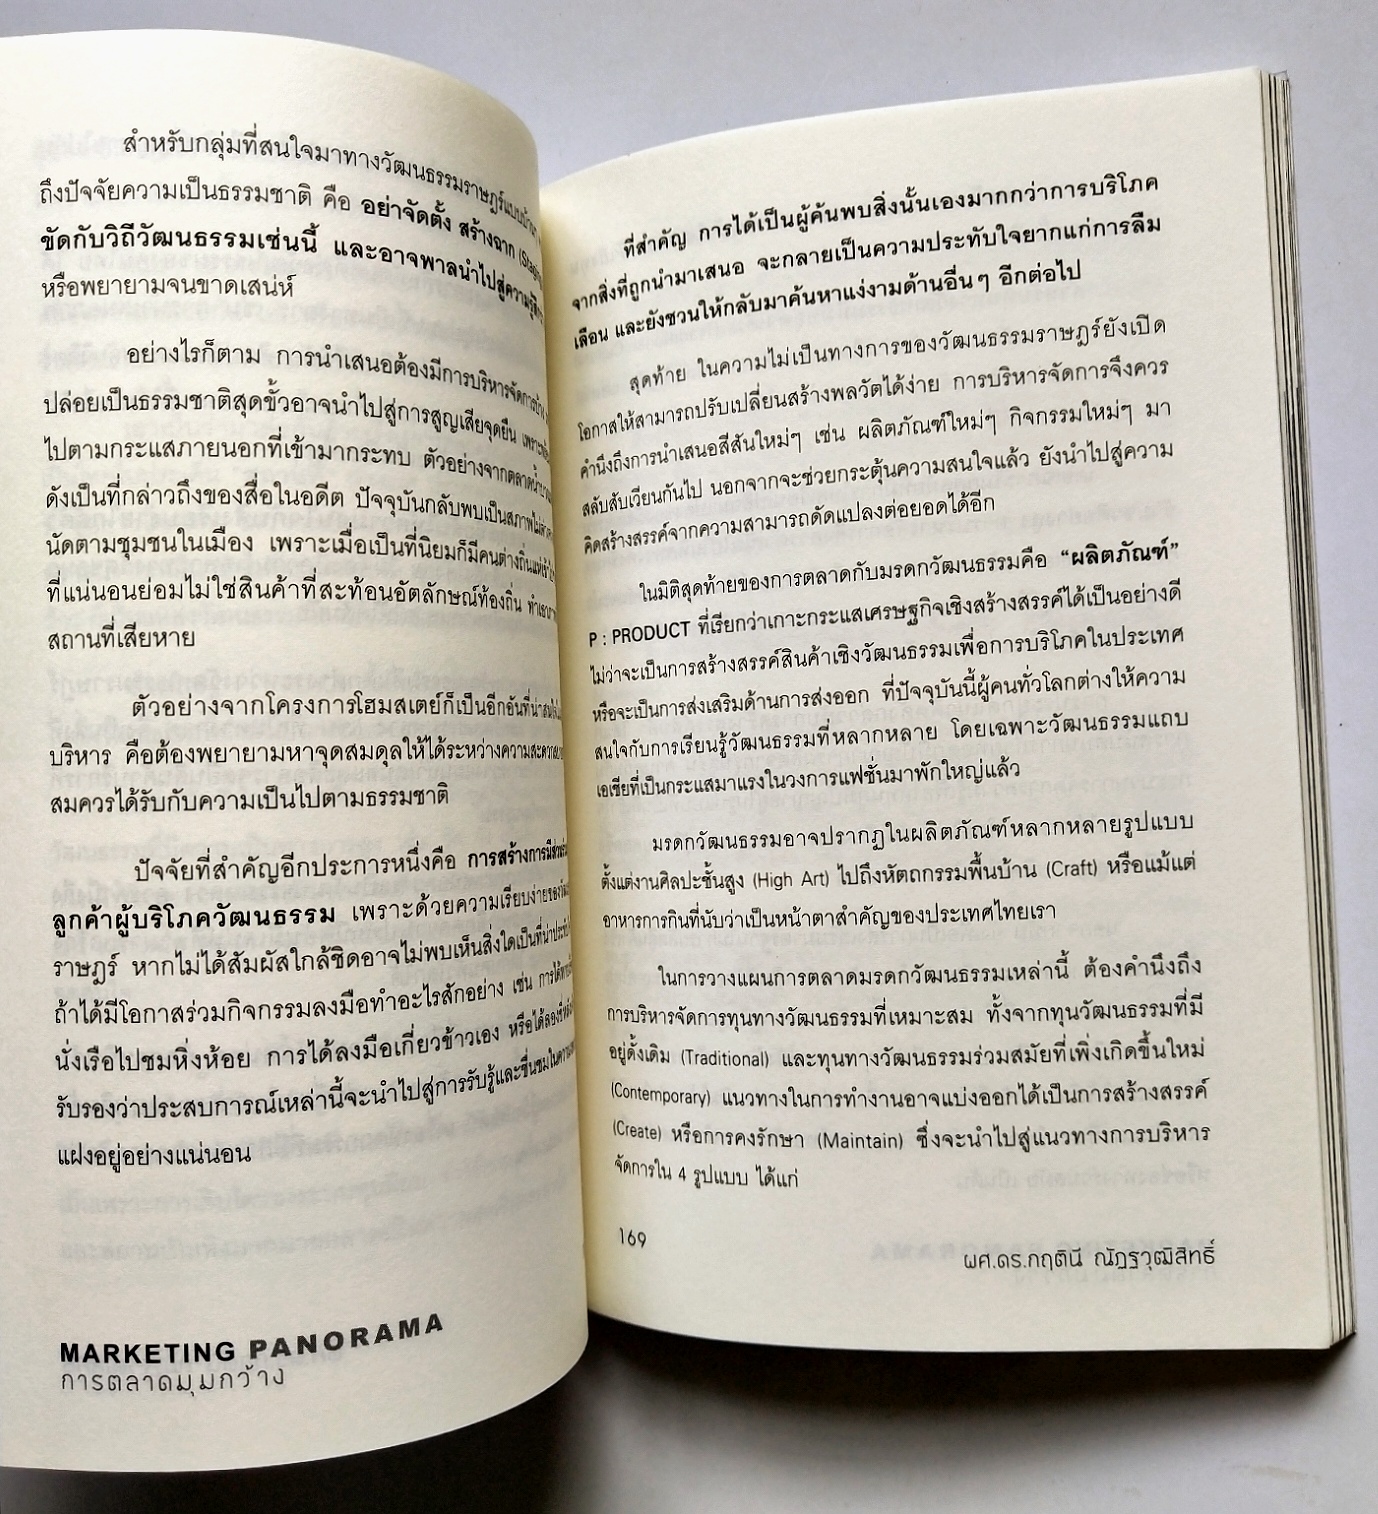 สำหรับกลุ่มที่สนใจมาทางวัฒนธรรมราษฎร์แบบบ้านๆ
ถึงปัจจัยความเป็นธรรมชาติ คือ อย่าจัดตั้ง สร้างฉาก
ขัดกับวิถีวัฒนธรรมเช่นนี้ และอาจพาลนำไปสู่ความรู้สึก
หรือพยายามจนขาดเสน่ห์
อย่างไรก็ตาม การนำเสนอต้องมีการบริหารจัดการบ้าง
ปล่อยเป็นธรรมชาติสุดขั้วอาจนำไปสู่การสูญเสียจุดยืน
ไปตามกระแสภายนอกที่เข้ามากระทบ ตัวอย่างจากตลาดน้ำ
ดังเป็นที่กล่าวถึงของสื่อในอดีต ปัจจุบันกลับพบเป็นสภาพไม่ต่าง
นัดตามชุมชนในเมือง เพราะเมื่อเป็นที่นิยมก็มีคนต่างถิ่น
ที่แน่นอนย่อมไม่ใช่สินค้าที่สะท้อนอัตลักษณ์ท้องถิ่น
สถานที่เสียหาย
ตัวอย่างจากโครงการโฮมสเตย์ก็เป็นอีกอันที่น่าสนใจ
บริหาร คือต้องพยายามหาจุดสมดุลให้ได้ระหว่างความสะดวก
สมควรได้รับกับความเป็นไปตามธรรมชาติ
ปัจจัยที่สำคัญอีกประการหนึ่งคือ การสร้างการมีส่วนร่วม
ลูกค้าผู้บริโภควัฒนธรรม เพราะด้วยความเรียบง่ายของ
ราษฎร์ หากไม่ได้สัมผัสใกล้ชิดอาจไม่พบเห็นสิ่งใดเป็นที่น่าประทับใจ
ถ้าได้มีโอกาสร่วมกิจกรรมลงมือทำอะไรสักอย่าง เช่น
นั่งเรือไปชมหิ่งห้อย การได้ลงมือเกี่ยวข้าวเอง หรือได้ลอง
รับรองว่าประสบการณ์เหล่านี้จะนำไปสู่การรับรู้และชื่นชมใน
แฝงอยู่อย่างแน่นอน
MARKETING PANORAMA
การตลาดมุมกว้าง
ที่สำคัญ การได้เป็นผู้ค้นพบสิ่งนั้นเองมากกว่าการบริโภค
จากสิ่งที่ถูกนำมาเสนอ จะกลายเป็นความประทับใจยากแก่การลืม
เลือน และยังชวนให้กลับมาค้นหาแง่งามด้านอื่นๆ อีกต่อไป
สุดท้าย ในความไม่เป็นทางการของวัฒนธรรมราษฎร์ยังเปิด
โอกาสให้สามารถปรับเปลี่ยนสร้างพลวัตได้ง่าย การบริหารจัดการจึงควร
คำนึงถึงการนำเสนอสีสันใหม่ๆ เช่น ผลิตภัณฑ์ใหม่ๆ กิจกรรมใหม่ๆ มา
สลับสับเวียนกันไป นอกจากจะช่วยกระตุ้นความสนใจแล้ว ยังนำไปสู่ความ
คิดสร้างสรรค์จากความสามารถดัดแปลงต่อยอดได้อีก
ในมิติสุดท้ายของการตลาดกับมรดกวัฒนธรรมคือ “ผลิตภัณฑ์”
P : PRODUCT ที่เรียกว่าเกาะกระแสเศรษฐกิจเชิงสร้างสรรค์ได้เป็นอย่างดี
ไม่ว่าจะเป็นการสร้างสรรค์สินค้าเชิงวัฒนธรรมเพื่อการบริโภคในประเทศ
หรือจะเป็นการส่งเสริมด้านการส่งออก ที่ปัจจุบันนี้ผู้คนทั่วโลกต่างให้ความ
สนใจกับการเรียนรู้วัฒนธรรมที่หลากหลาย โดยเฉพาะวัฒนธรรมแถบ
เอเชียที่เป็นกระแสมาแรงในวงการแฟชั่นมาพักใหญ่แล้ว
มรดกวัฒนธรรมอาจปรากฏในผลิตภัณฑ์หลากหลายรูปแบบ
ตั้งแต่งานศิลปะชั้นสูง (High Art) ไปถึงหัตถกรรมพื้นบ้าน (Craft) หรือแม้แต่
อาหารการกินที่นับว่าเป็นหน้าตาสำคัญของประเทศไทยเรา
ในการวางแผนการตลาดมรดกวัฒนธรรมเหล่านี้ ต้องคำนึงถึง
การบริหารจัดการทุนทางวัฒนธรรมที่เหมาะสม ทั้งจากทุนวัฒนธรรมที่มี
อยู่ดั้งเดิม (Traditional) และทุนทางวัฒนธรรมร่วมสมัยที่เพิ่งเกิดขึ้นใหม่
(Contemporary) แนวทางในการทำงานอาจแบ่งออกได้เป็นการสร้างสรรค์
(Create) หรือการคงรักษา (Maintain) ซึ่งจะนำไปสู่แนวทางการบริหาร
จัดการใน 4 รูปแบบ ได้แก่
169
ผศ.ดร.กฤตินี ณัฏฐวุฒิสิทธิ์